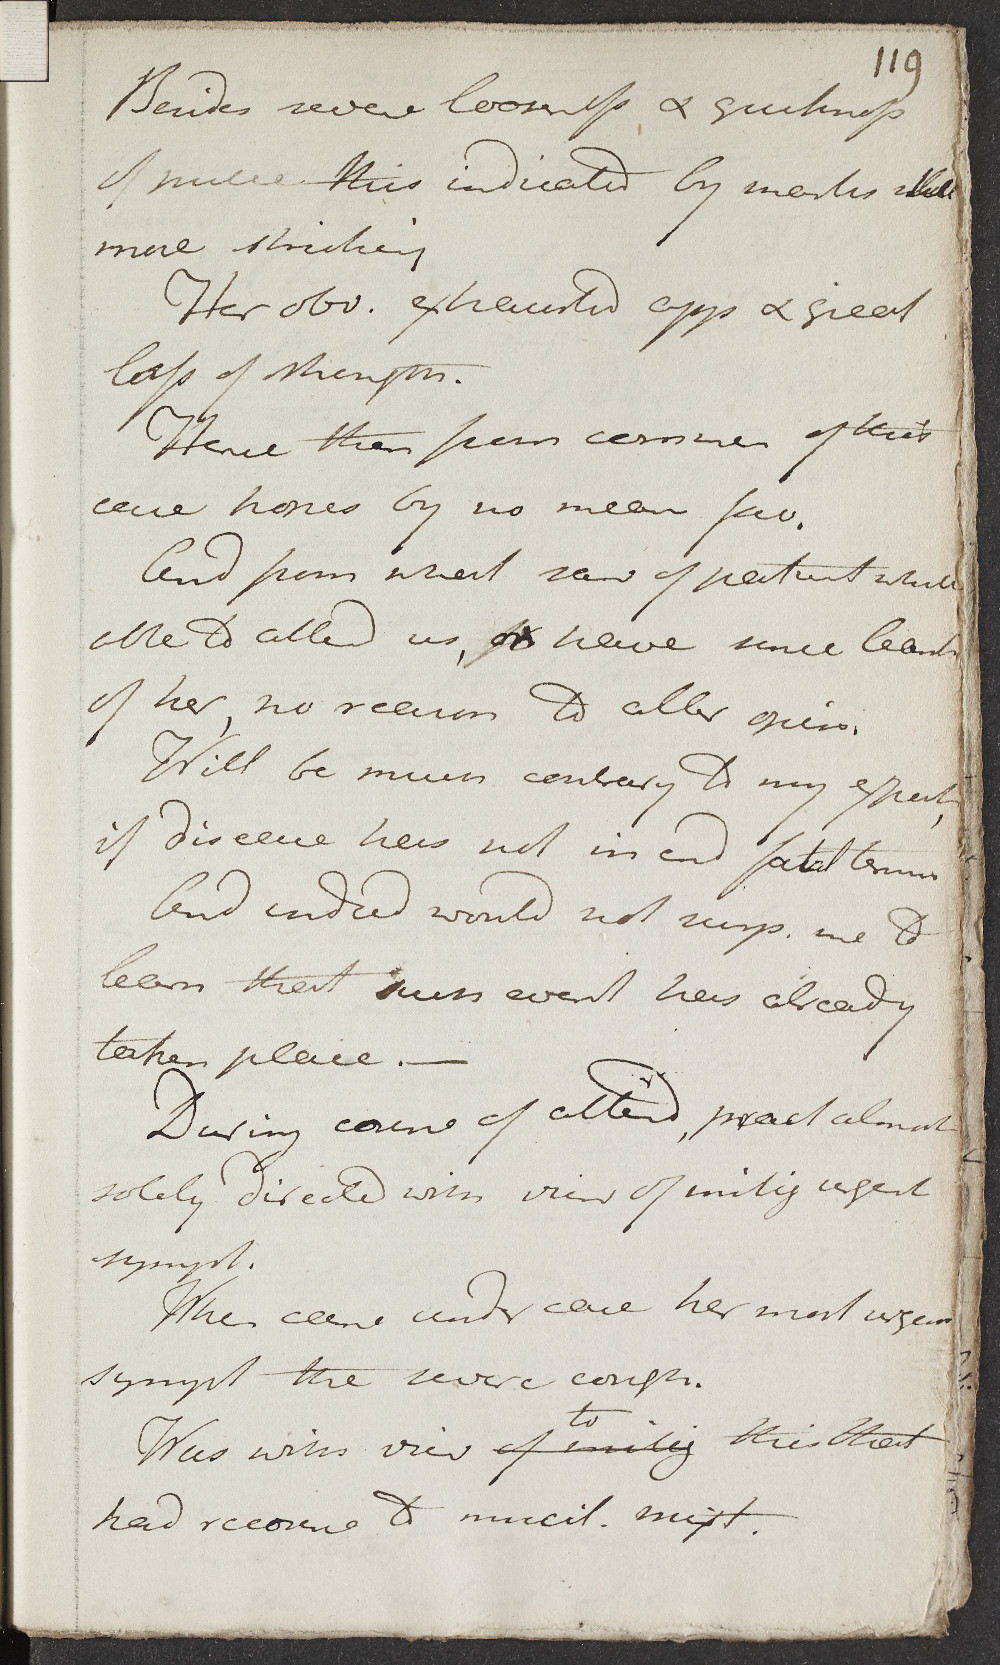 119
Besides severe looseness, & quickness
of pulse this indicated by marks still
more striking
Her obv. exhausted app & great
loss of strength.
Hence then from commen of this
case hopes by no mean fav.
And from what saw of patient while
able to attend us, or have since learnt
of her, no reason to alter opin.
Will be much contrary to my expect,
if disease has not in end fatal termin
And indeed would not surp. me to
learn that such event has already
taken place. —
During course of attend, pract almost
solely directed with view of mitig urgent
sympt.
When came under care her most urgen
sympt the severe cough.
Was with view of mitig to this that
had recourse to mucil. mixt.